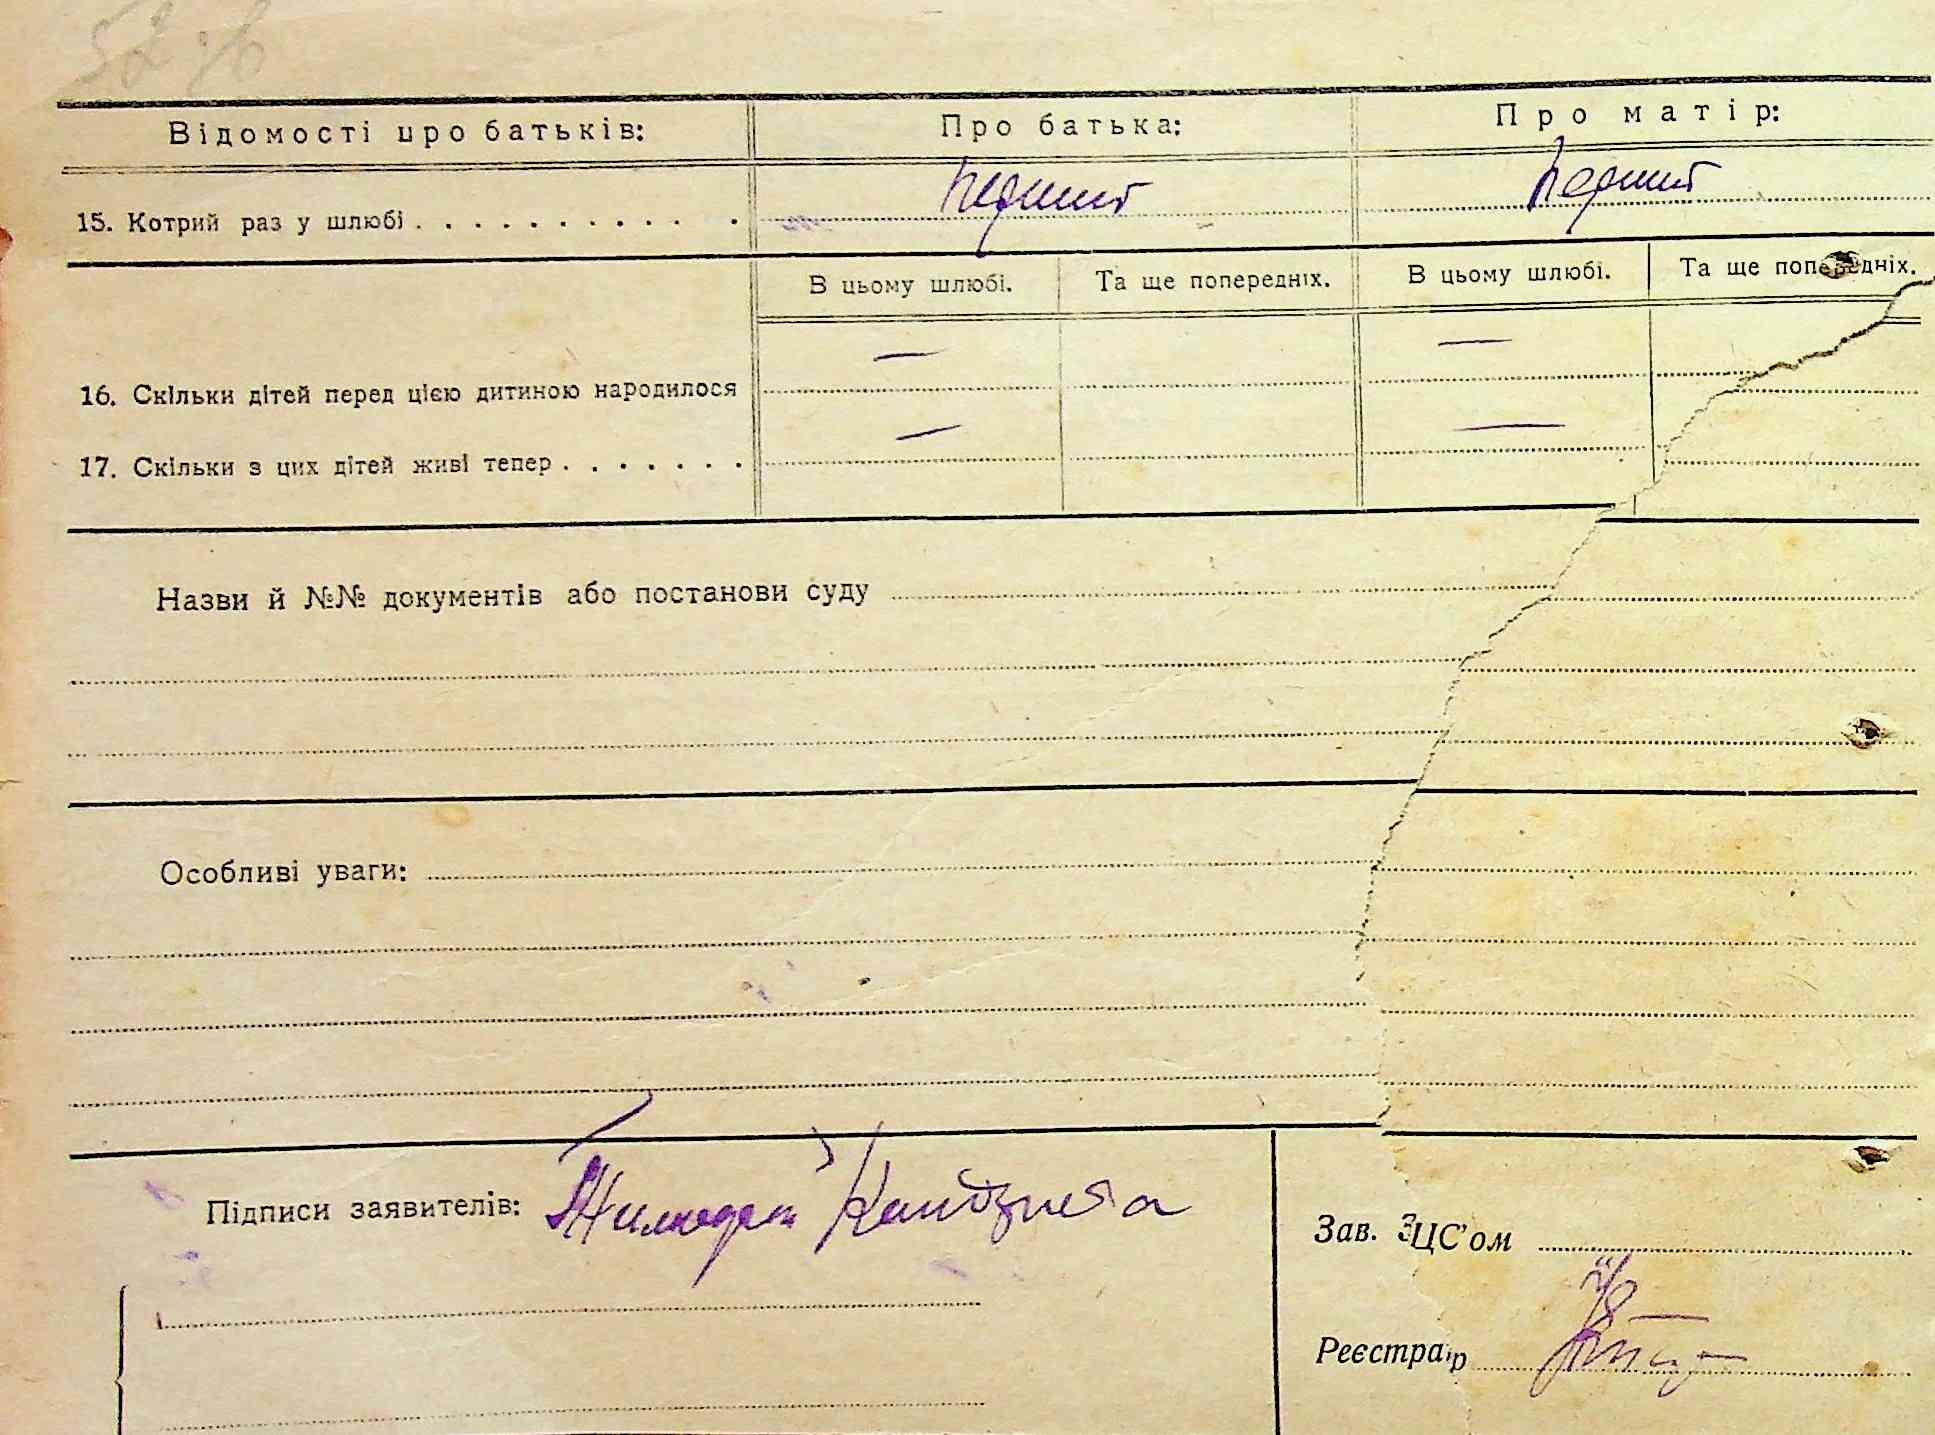 Відомості про батьків: Про батька: Про матір:
15. Котрий раз у шлюбі . . . . . . . . . . . . перший перший
В цьому шлюбі. Та ще попередніх. В цьому шлюбі. Та ще попередніх.
16. Скільки дітей перед цією дитиною народилося — —
17. Скільки з цих дітей живі тепер . . . . . . . — —
Назви й №№ документів або постанови суду
Особливі уваги:
Підписи заявителів:
Зав. ЗЦС'ом
Реєстратор